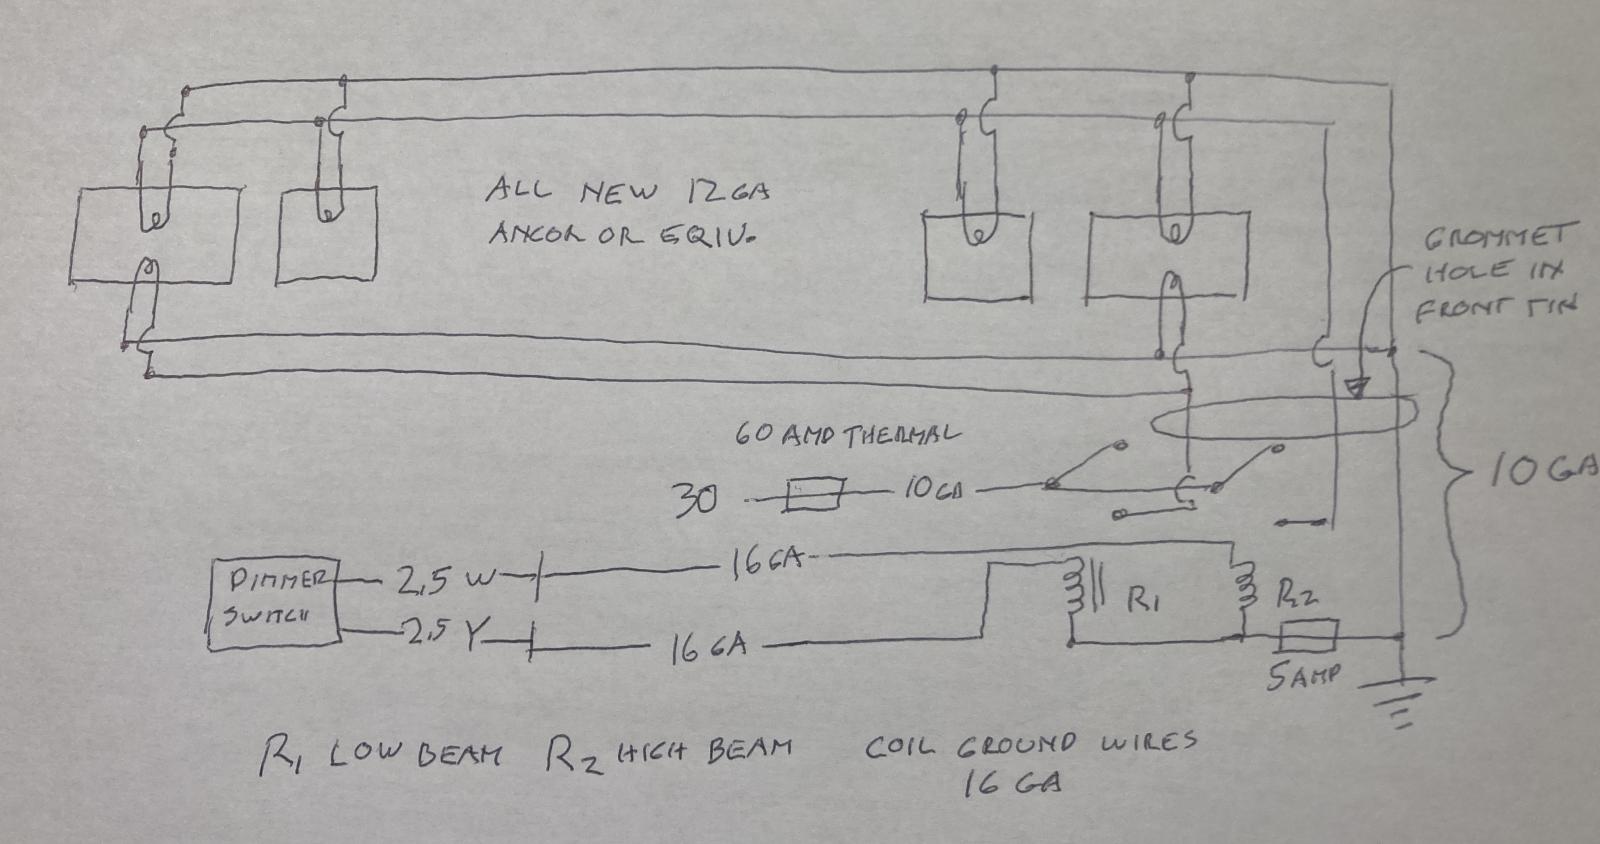 ALL NEW 12GA
ANCOR OR EQIV.
GROMMET
HOLE IN
FRONT TIN
60 AMP THERMAL
30
10GA
10GA
DIMMER
SWITCH
2.5 W
16GA
2.5 Y
16GA
R1
R2
5AMP
R1 LOW BEAM R2 HIGH BEAM
COIL GROUND WIRES
16 GA